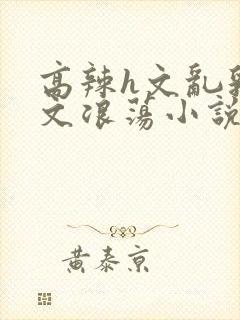 高辣h文亂
文浪蕩小說
黃泰京